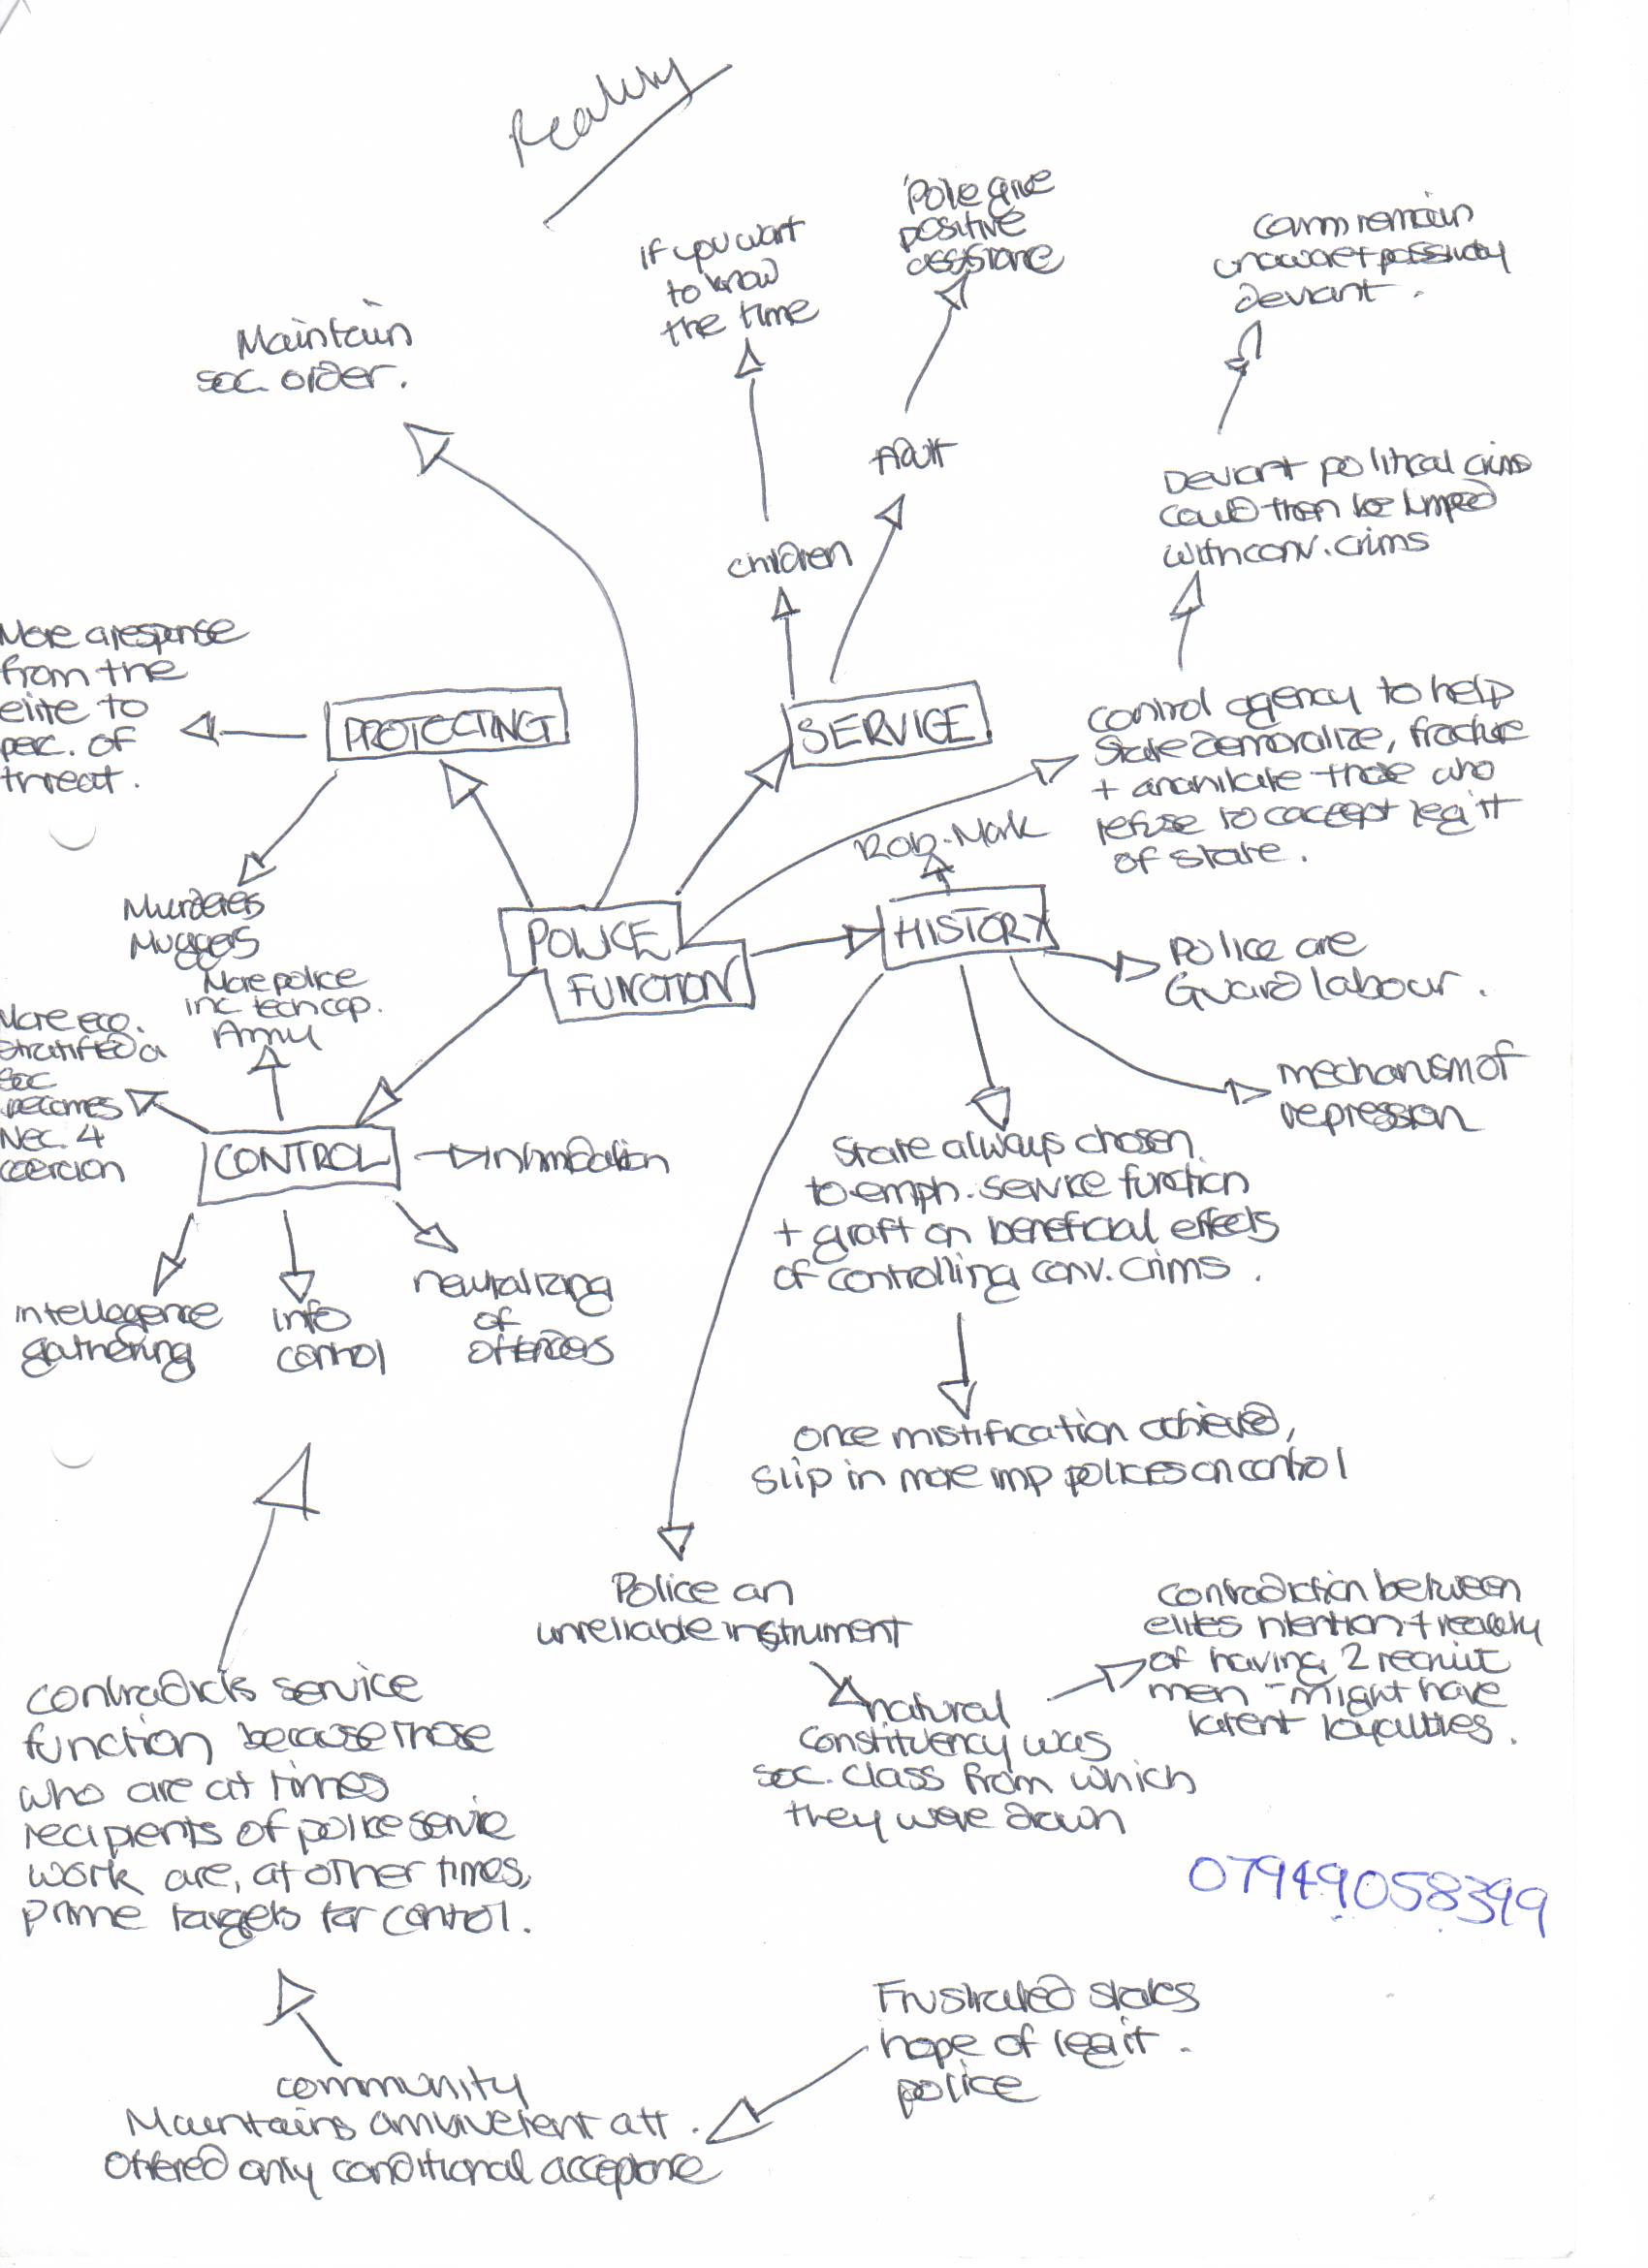 Reality
Maintain
soc. order.
if you want
to know
the time
Police give
positive
assistance
comm remain
unaware + passively
deviant.
Adult
children
Deviant political crims
could then be lumped
with conv. crims
More a response
from the
elite to
perc. of
threat.
PROTECTING
SERVICE
control agency to help
State demoralize, fracture
+ annihilate those who
refuse to accept legitt
of state.
Rob. Mark
Murderers
Muggers
POLICE
FUNCTION
HISTORY
Police are
Guard labour.
More police
inc tech cap.
Army
More eco.
stratified a
soc
becomes
Nec. 4
coercion
CONTROL
intimidation
mechanism of
repression
State always chosen
to emph. service function
+ graft on beneficial effects
of controlling conv. crims.
intellegence
gathering
info
control
neutralizing
of
offenders
once mistification achieved,
slip in more imp policies on control
Police an
unreliable instrument
natural
constituency was
soc. class from which
they were drawn
contradiction between
elites intention + reality
of having 2 recruit
men - might have
latent loyalties.
contradicts service
function because those
who are at times
recipients of police service
work are, at other times,
prime targets for control.
07949058399
Frustrated states
hope of legit.
police
community
Maintains amviverent att.
offered only conditional acceptance